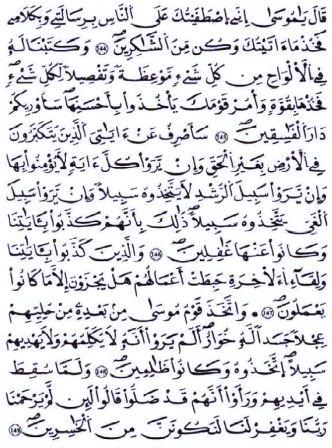 قَالَ يَٰمُوسَىٰٓ إِنِّے اِصْطَفَيْتُكَ عَلَى اَلنَّاسِ بِرِسَٰلَتِے وَبِكَلَٰمِے
فَخُذْ مَآ ءَاتَيْتُكَ وَكُن مِّنَ اَلشَّٰكِرِينَۖ ١٤٤ وَكَتَبْنَا لَهُۥ
فِے اِلَالْوَاحِ مِن كُلِّ شَےْءٖ مَّوْعِظَةٗ وَتَفْصِيلٗا لِّكُلِّ شَےْءٖ
فَخُذْهَا بِقُوَّةٖ وَامُرْ قَوْمَكَ يَاخُذُواْ بِأَحْسَنِهَاۖ سَأُوْرِيكُمْ
دَارَ اَلْفَٰسِقِينَۖ ١٤٥ سَأَصْرِفُ عَنَ ايَٰتِيَ اَلذِينَ يَتَكَبَّرُونَ
فِے اِلَارْضِ بِغَيْرِ اِلْحَقِّ وَإِنْ يَّرَوْاْ كُلَّ ءَايَةٖ لَّا يُومِنُواْ بِهَا
وَإِنْ يَّرَوْاْ سَبِيلَ اَلرُّشْدِ لَا يَتَّخِذُوهُ سَبِيلاٗ وَإِنْ يَّرَوْاْ سَبِيلَ
اَلْغَيِّ يَتَّخِذُوهُ سَبِيلاٗۖ ذَٰلِكَ بِأَنَّهُمْ كَذَّبُواْ بِـَٔايَٰتِنَا
وَكَانُواْ عَنْهَا غَٰفِلِينَۖ ١٤٦ وَالذِينَ كَذَّبُواْ بِـَٔايَٰتِنَا
وَلِقَآءِ اِلَاخِرَةِ حَبِطَتَ اَعْمَٰلُهُمْ هَلْ يُجْزَوْنَ إِلَّا مَا كَانُواْ
يَعْمَلُونَۖ ١٤٧ وَاتَّخَذَ قَوْمُ مُوسَىٰ مِنۢ بَعْدِهِۦ مِنْ حُلِيِّهِمْ
عِجْلاٗ جَسَداٗ لَّهُۥ خُوَارٌۖ اَلَمْ يَرَوَاْ اَنَّهُۥ لَا يُكَلِّمُهُمْ وَلَا يَهْدِيهِمْ
سَبِيلاًۖ اِتَّخَذُوهُ وَكَانُواْ ظَٰلِمِينَۖ ١٤٨ وَلَمَّا سُقِطَ
فِےٓ أَيْدِيهِمْ وَرَأَوَاْ اَنَّهُمْ قَد ضَّلُّواْ قَالُواْ لَئِن لَّمْ يَرْحَمْنَا
رَبُّنَا وَيَغْفِرْ لَنَا لَنَكُونَنَّ مِنَ اَلْخَٰسِرِينَۖ ١٤٩